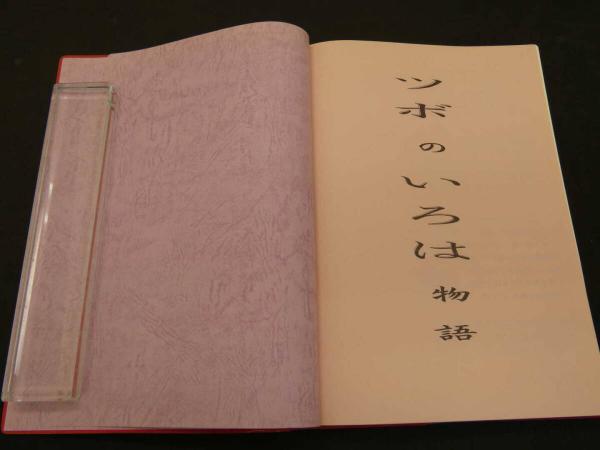 ツボのいろは物語